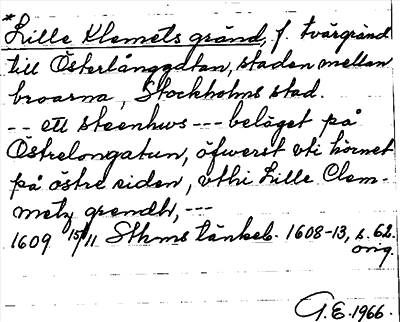 *Lille Klemets gränd, f. tvärgränd
till Österlånggatan, staden mellan
broarna, Stockholms stad.
-- ett steenhws --- beläget på
Östrelongatun, öfwerst vti hörnet
på östre siden, vthi Lille Clem-
metz grendh, ---
1609 15/11 Sthms tänkeb. 1608-13, s. 62.
orig.
G.E. 1966.